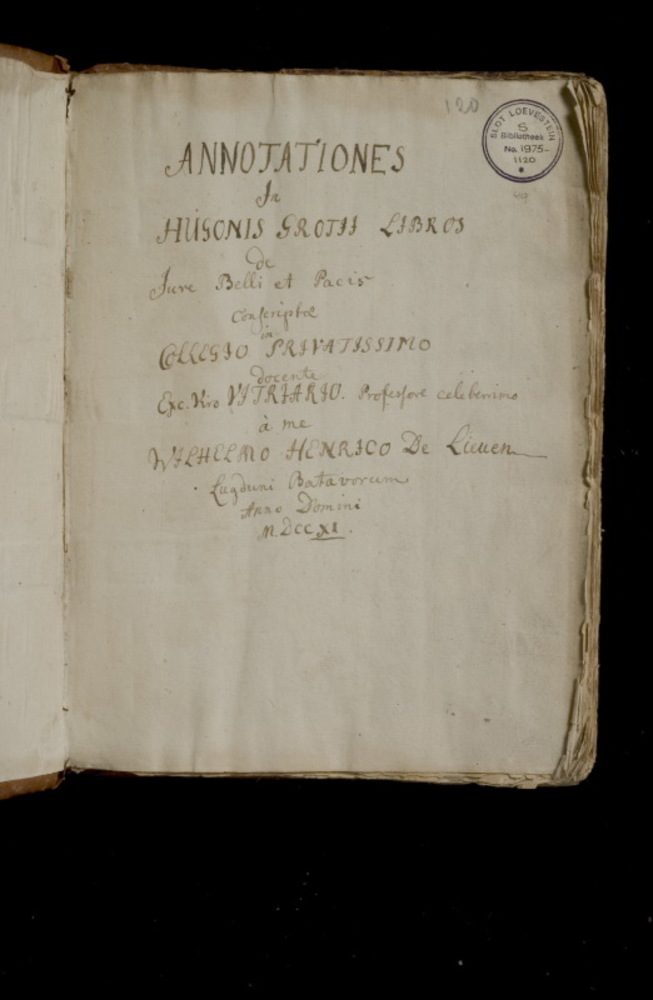 120
SLOT LOEVESTEIN
S
Bibliotheek
No. 1975-
1120
ANNOTATIONES
In
HUGONIS GROTII LIBROS
de
Jure Belli et Pacis
Conscriptæ
in
COLLEGIO PRIVATISSIMO
docente
Exc. Viro VITRIARIO. Professore celeberrimo
à me
WILHELMO HENRICO De Lieuen
Lugduni Batavorum
Anno Domini
M.DCCXI.